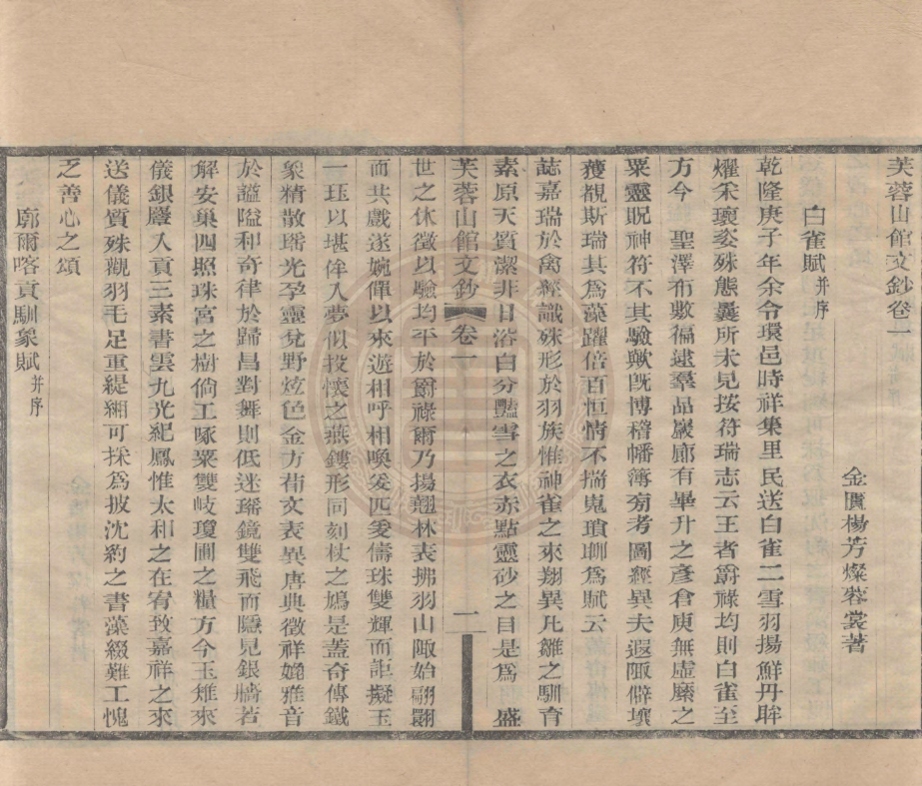 芙蓉山館文鈔卷一
金匱楊芳燦蓉裳著
白雀賦并序
乾隆庚子年余令環邑時祥集里民送白雀二雪羽揚鮮丹眸
燿采瓌姿殊態曩所未見按符瑞志云王者爵祿均則白雀至
方今　聖澤布敷福逮羣品巖廊有畢升之彥倉庾無虛廩之
粟靈貺神符不其驗歟旣博稽幡簿旁考圖經異夫遐陬僻壤
獲覩斯瑞其爲藻躍倍百恒情不揣嵬瑣聊爲賦云
誌嘉瑞於禽經識殊形於羽族惟神雀之來翔異凡雛之馴育
素原天質潔非日浴白分豔雪之衣赤點靈砂之目是爲　盛
芙蓉山館文鈔　卷一　一
世之休徵以驗均平於爵祿爾乃揚翹林表拂羽山陬始翩翾
而共戲遂婉僤以來遊相呼相喚爰匹爰儔珠雙輝而詎擬玉
一珏以堪侔入夢似投懷之燕鏤形同刻杖之鳩是蓋奇傳鐵
象精散瑤光孕靈兌野炫色金方荀文表異唐典徵祥媲雅音
於謐隘和奇律於歸昌對舞則低迷璿鏡雙飛而隱見銀牆若
解安巢四照珠宮之樹倘工啄粟雙岐瓊圃之糧方今玉雉來
儀銀麞入貢三素書雲九光紀鳳惟太和之在宥致嘉祥之來
送儀質殊觀羽毛足重緹緗可採爲披沈約之書藻綴難工愧
之善心之頌
廓爾喀貢馴象賦并序